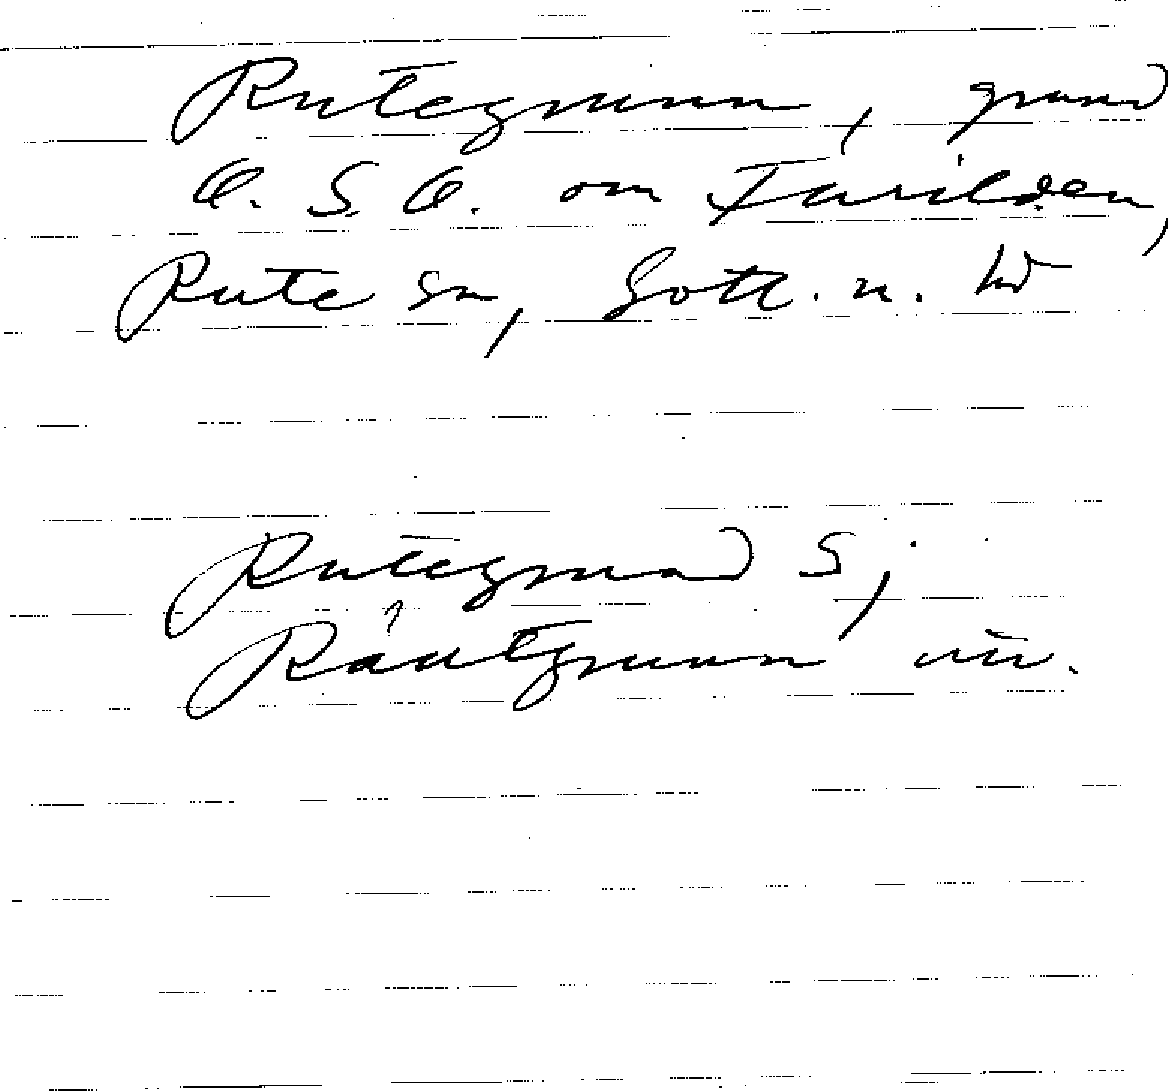 Rutegrunn, grund
O. S. O. om Furilden,
Rute sn, Gotl. n. hd
Rutegrund S,
Räutgrunn